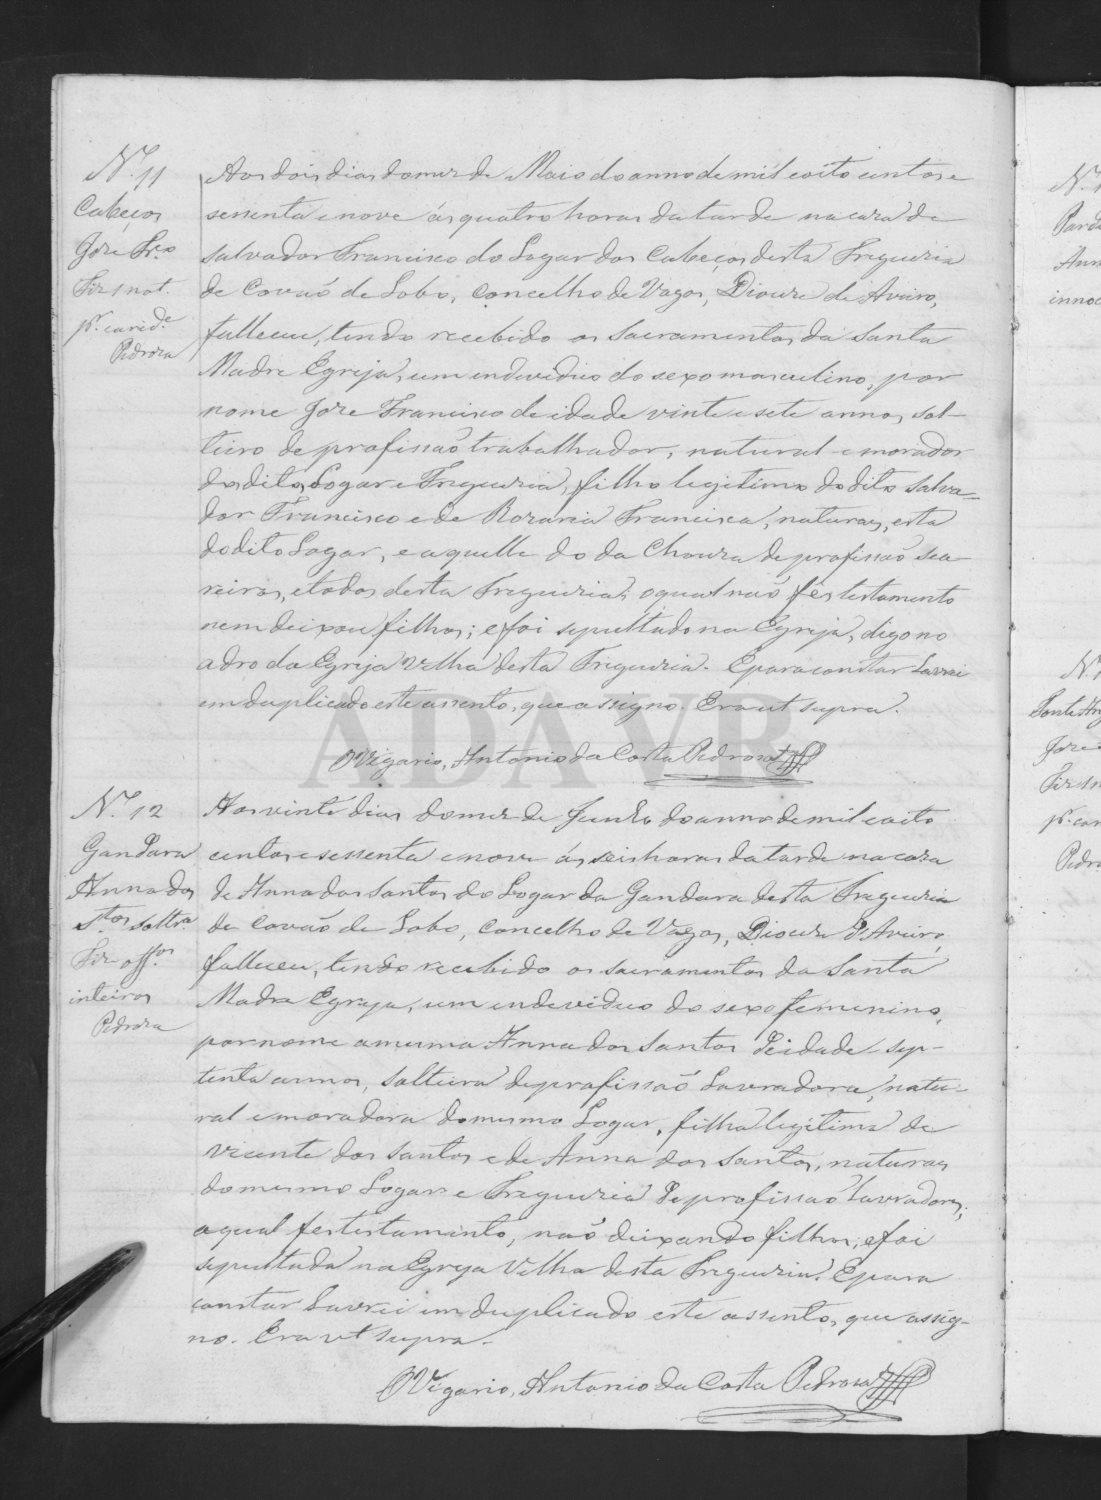 N.º 11
Cabeços
Joze Fr.co
Fiz 1 not.
p.r carid.e
Pedroza
Aos dois dias do mez de Maio do anno de mil eoito centos e
sessenta e nove ás quatro horas da tarde na caza de
Salvador Francisco do Logar dos Cabeços desta Freguezia
de Covaõ de Lobo, Concelho de Vagos, Diouze de Aveiro,
falleceu, tendo recebido os Sacramentos da Santa
Madre Egreja, um endevidio do sexo masculino, por
nome Joze Francisco de idade vinte e sete annos, sol-
teiro de profissaõ trabalhador, natural e morador
do dito Logar e Freguezia, filho legitimo do dito Salva-
dor Francisco e de Rozaria Francisca, naturaes, esta
do dito Logar, e aquelle do da Chouza de profissaõ sea-
reiros, e todos desta Freguezia; o qual naõ fês testamento
nem deixou filhos; e foi sepultado na Egreja, digo no
adro da Egreja velha desta Freguezia. E para constar Lavrei
em duplicado este assento, que assigno. Era ut supra.
O Vigario, Antonio da Costa Pedroza
ADAVR
N.º 12
Gandara
Anna dos
S.tos soltr.a
Fiz off.os
inteiros
Pedroza
Aos vinte dias do mez de Junho do anno de mil e oito
centos e sessenta e nove ás seis horas da tarde na caza
de Anna dos Santos do Logar da Gandara desta Freguezia
de Covaõ de Lobo, Concelho de Vagos, Diouze d'Aveiro,
falleceu, tendo recebido os sacramentos da Santa
Madre Egreja, um endeviduo do sexo femenino,
por nome a mesma Anna dos Santos de idade sep-
tenta annos, solteira de profissaõ Lavradora, natu-
ral e moradora do mesmo Logar, filha legitima de
Vicente dos Santos e de Anna dos Santos, naturaes
do mesmo Logar e Freguezia de profissaõ lavradores;
a qual fes testamento, naõ deixando filhos; e foi
sepultada na Egreja Velha desta Freguezia. E para
constar Lavrei em duplicado este assento, que assig-
no. Era ut supra.
O Vigario, Antonio da Costa Pedroza